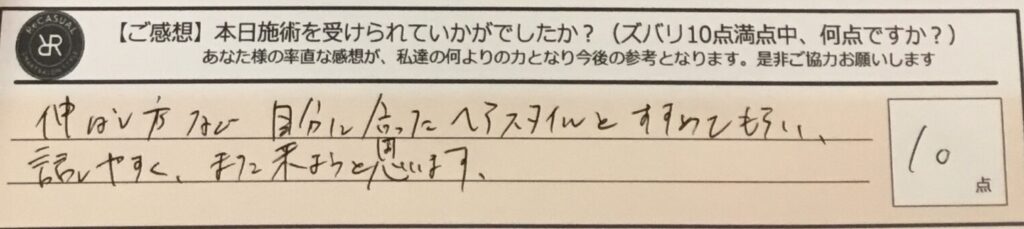 ReCASUAL
RR
【ご感想】本日施術を受けられていかがでしたか？（ズバリ10点満点中、何点ですか？）
あなた様の率直な感想が、私達の何よりの力となり今後の参考となります。是非ご協力お願いします
伸ばし方など 自分に合ったヘアスタイルをすすめてもらい、
話しやすく、また来ようと思います。
10
点